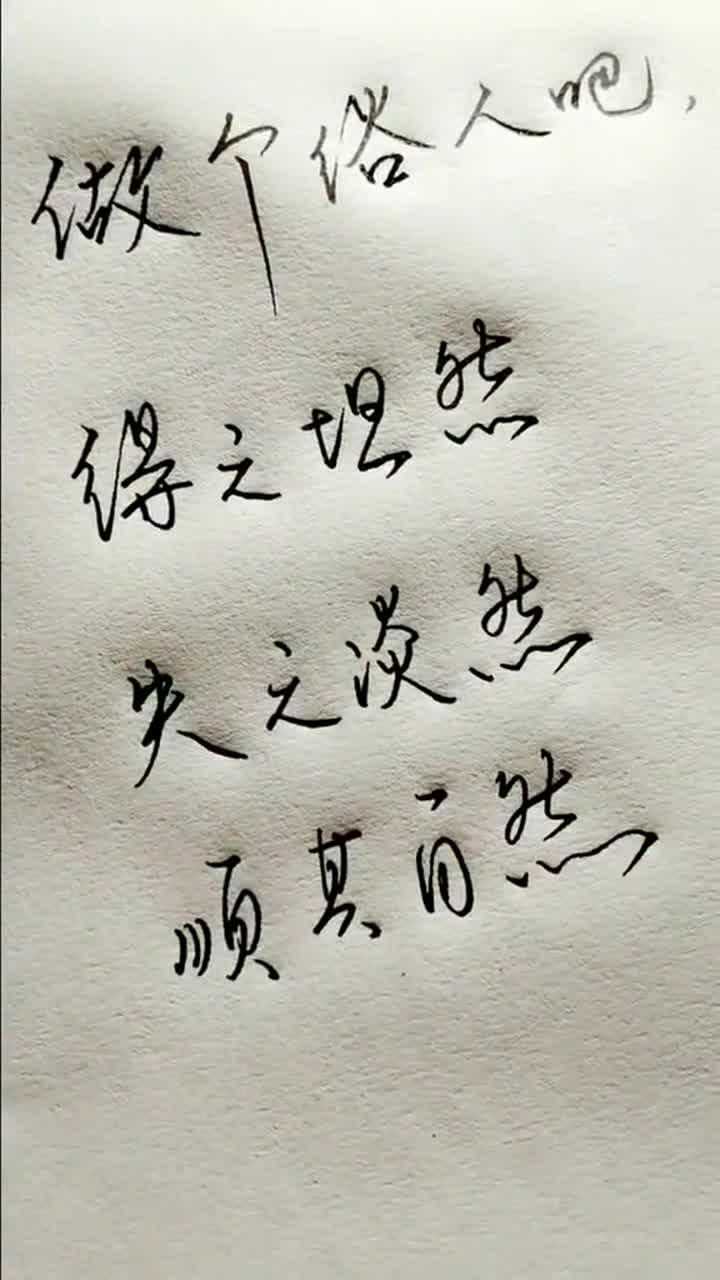 做个俗人吧,
得之坦然
失之淡然
顺其自然